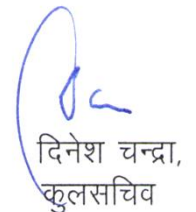 दिनेश चन्द्रा,
कुलसचिव